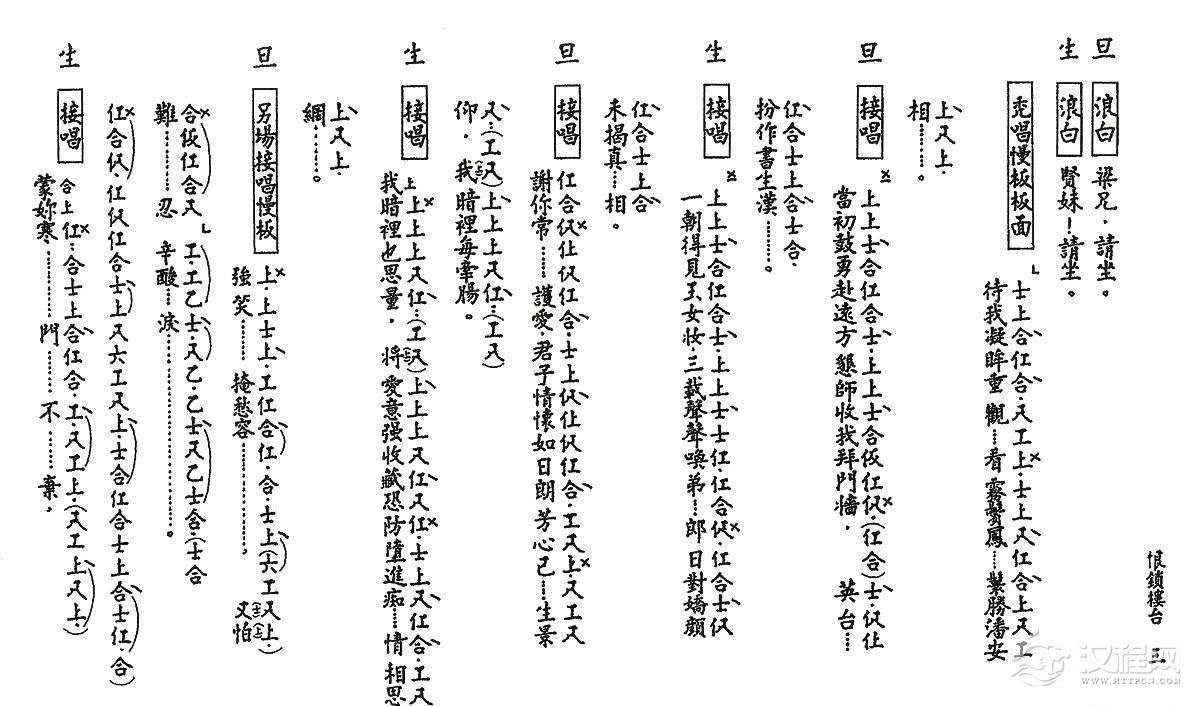 恨鎖樓台 三
旦 浪白 梁兄，請坐。
生 浪白 賢妹！請坐。
禿唱慢板板面
士上合仜合，尺工上，士上尺仜合上尺工
待我凝眸重 觀……看霧鬢鳳……鬟勝潘安
上尺上，
相……。
旦 接唱
上上士合仜合士，上上士合仮仜伬，(仜合)士，伬仩
當初鼓勇赴遠方 懇師收我拜門牆， 英台……
仜合士上合士合，
扮作書生漢……。
生 接唱
上上士合仜合士，上上士士仜，仜合伬，仜合士伬
一朝得見玉女妝，三載聲聲喚弟……郎 日對嬌顏
仜合士上合
未揭真……相。
旦 接唱
仜合伬仩伬仜合，士上伬仩伬仜合，工尺上，尺工尺
謝你常……護愛，君子情懷如日朗，芳心已……生景
尺…(工尺)上上上尺仜…(工尺)
仰，我暗裡每牽腸。
生 接唱
上上上上尺仜…(工尺)上上上尺仜尺仜，士上尺仜合，工尺
我暗裡也思量， 將愛意强收藏恐防墮進痴……情 相思
上尺上，
網……。
旦 另場接唱慢板
上，上士上，工仜合仜，合，士上(六工尺上，)
強笑…… 掩愁容…………， 又怕
合仮仜合尺 工，工乙士，尺乙，乙士尺乙士合，(士合
難………忍 辛酸…淚……………………。
仜合伬，仜伬仜合士上尺六工尺上，士合仜合士上合士仜，合)
生 接唱
合上仜…合士上合仜合，工，尺工上，(尺工上尺上，)
蒙妳寒，…………門……不……棄，
汉程网
WWW.HTTPCN.COM